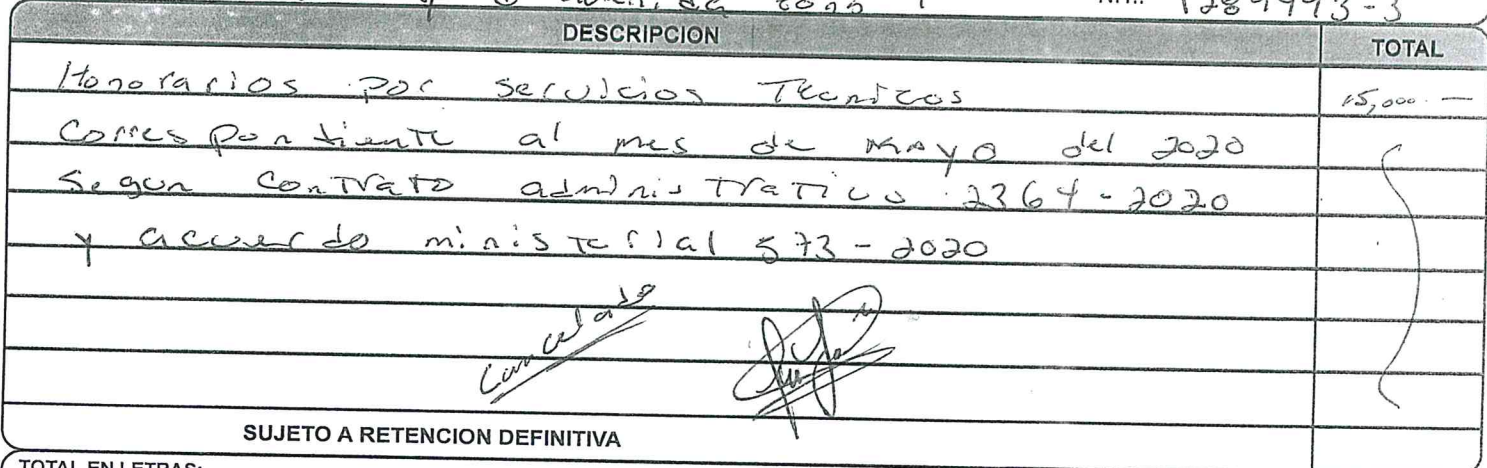 NIT.: 1289993-3
DESCRIPCION TOTAL
Honorarios por Servicios Tecnicos 15,000.—
Correspondiente al mes de Mayo del 2020
Segun Contrato administrativo 2364-2020
y acuerdo ministerial 573-2020
Cancelado
SUJETO A RETENCION DEFINITIVA
TOTAL EN LETRAS: